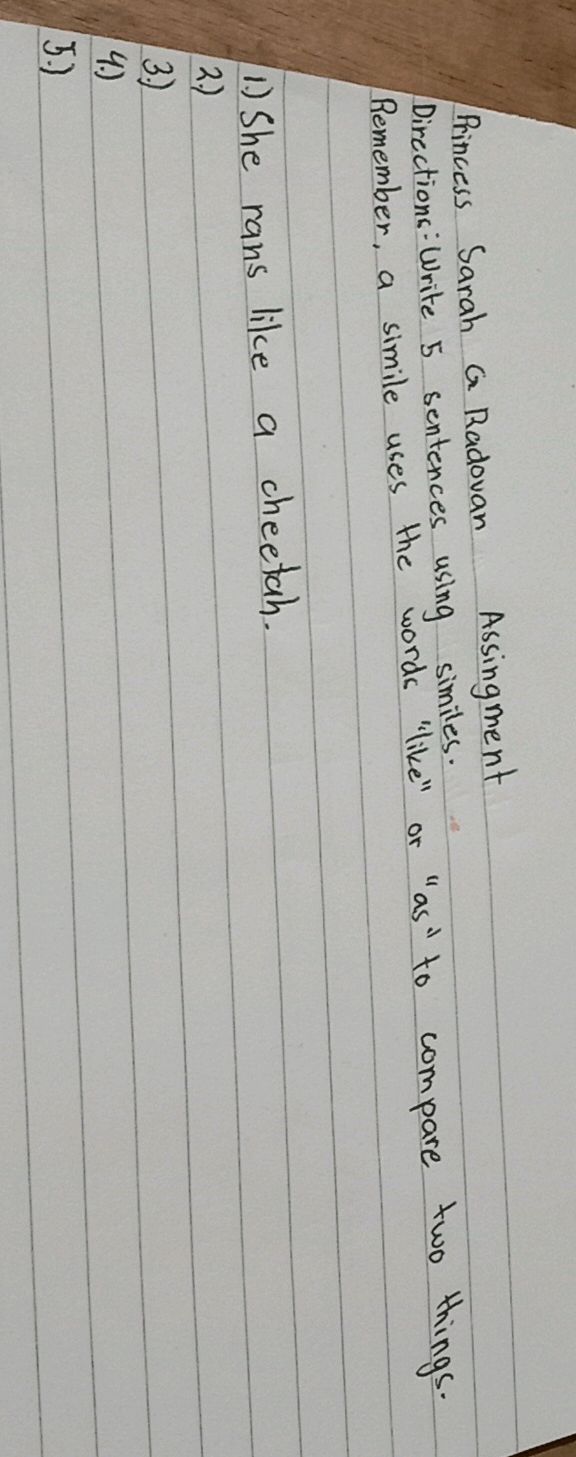 Princess Sarah G Radovan Assingment
Directions: Write 5 sentences using similes.
Remember, a simile uses the words "like" or "as" to compare two things.
1.) She rans like a cheetah.
2.)
3.)
4.)
5.)